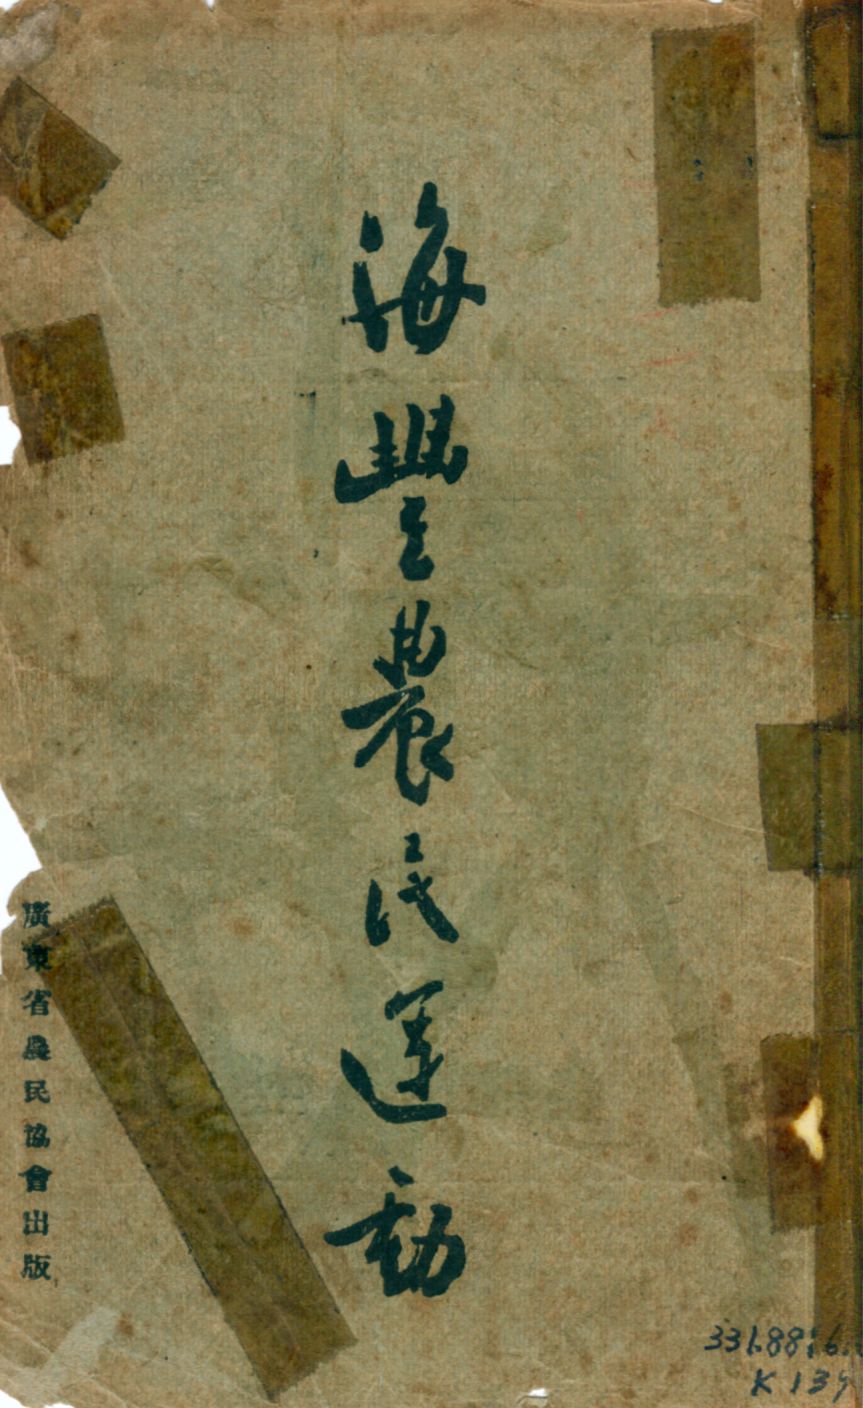 海豐農民運動
廣東省農民協會出版
331.88:6.
K 139